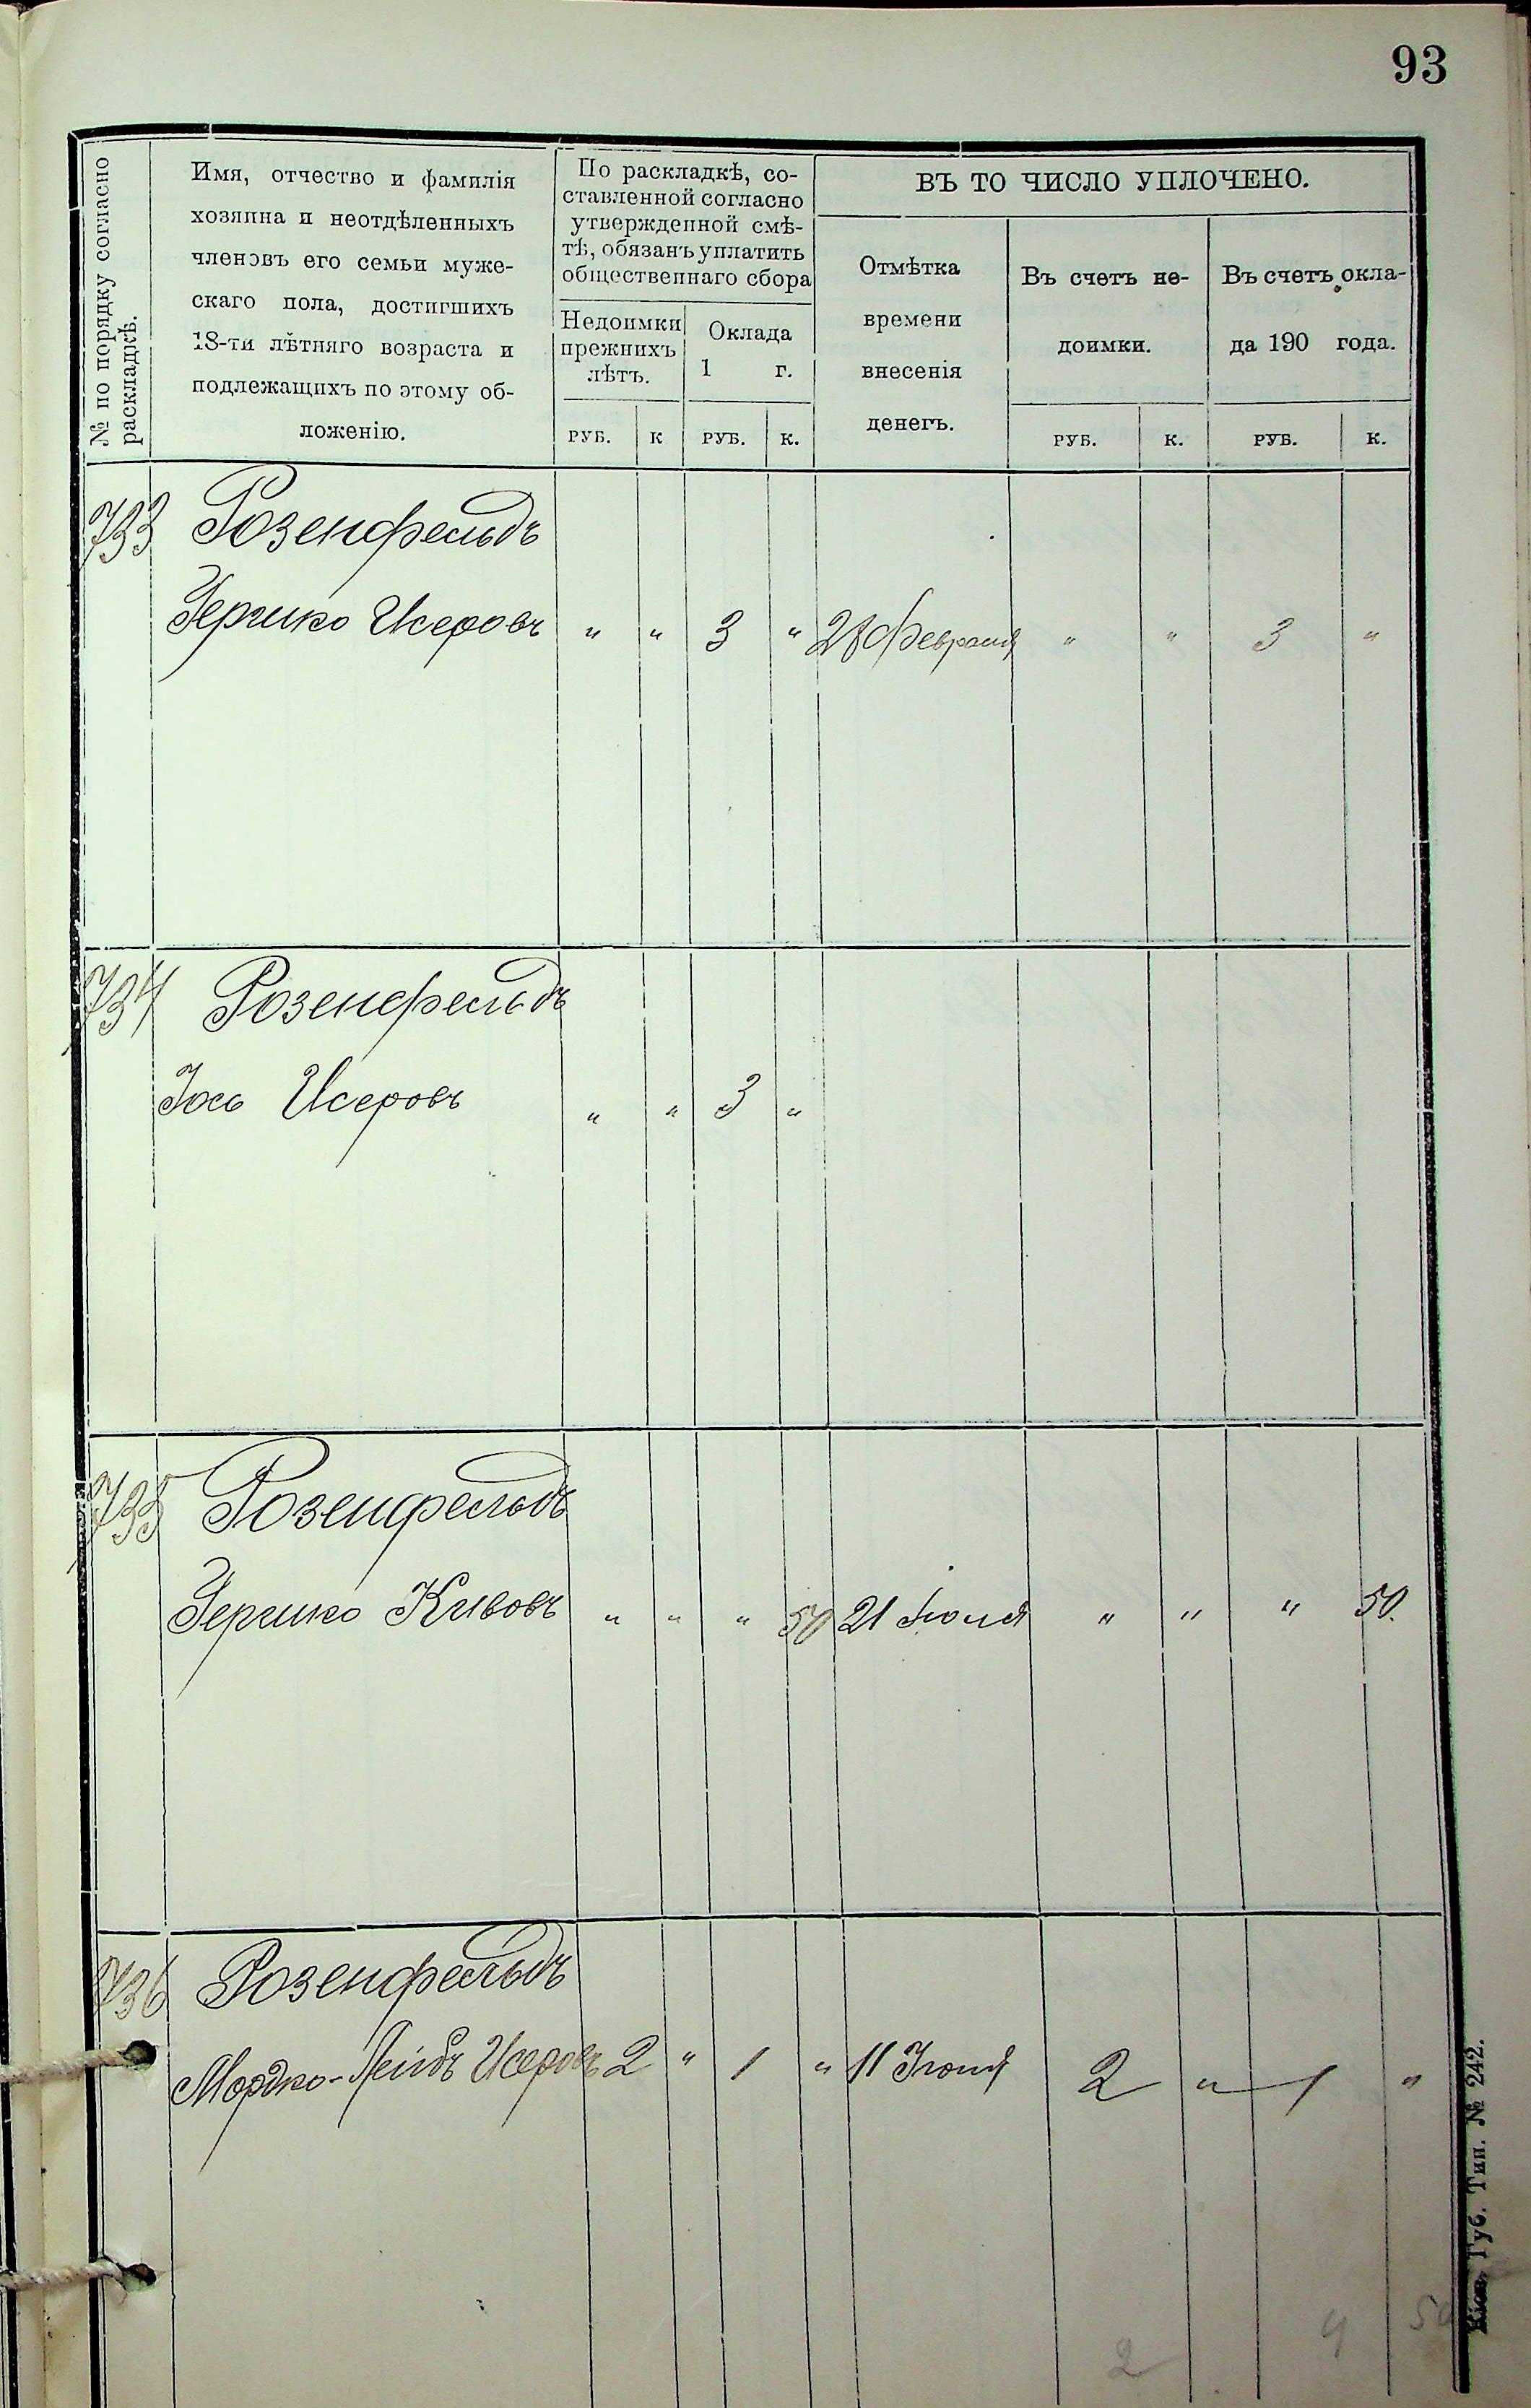 93
№ по порядку согласно
раскладкѣ.
Имя, отчество и фамилія
хозяина и неотдѣленныхъ
членовъ его семьи муже-
скаго пола, достигшихъ
18-ти лѣтняго возраста и
подлежащихъ по этому об-
ложенію.
По раскладкѣ, со-
ставленной согласно
утвержденной смѣ-
тѣ, обязанъ уплатить
общественнаго сбора
Недоимки
прежнихъ
лѣтъ.
Оклада
1 г.
ВЪ ТО ЧИСЛО УПЛОЧЕНО.
Отмѣтка
времени
внесенія
денегъ.
Въ счетъ не-
доимки.
Въ счетъ окла-
да 190 года.
РУБ. К РУБ. К. РУБ. К. РУБ. К.
733 Розенфельдъ
Гершко Исеровъ " " 3 " 28 Февраля " " 3 "
734 Розенфельдъ
Іось Исеровъ " " 3 "
735 Розенфельдъ
Гершко Кивовъ " " " 50 21 Іюня " " " 50.
736 Розенфельдъ
Мордко-Лейбъ Исеровъ 2 " 1 " 11 Іюня 2 " 1 "
2 4 50
Кіев. Губ. Тип. № 242.